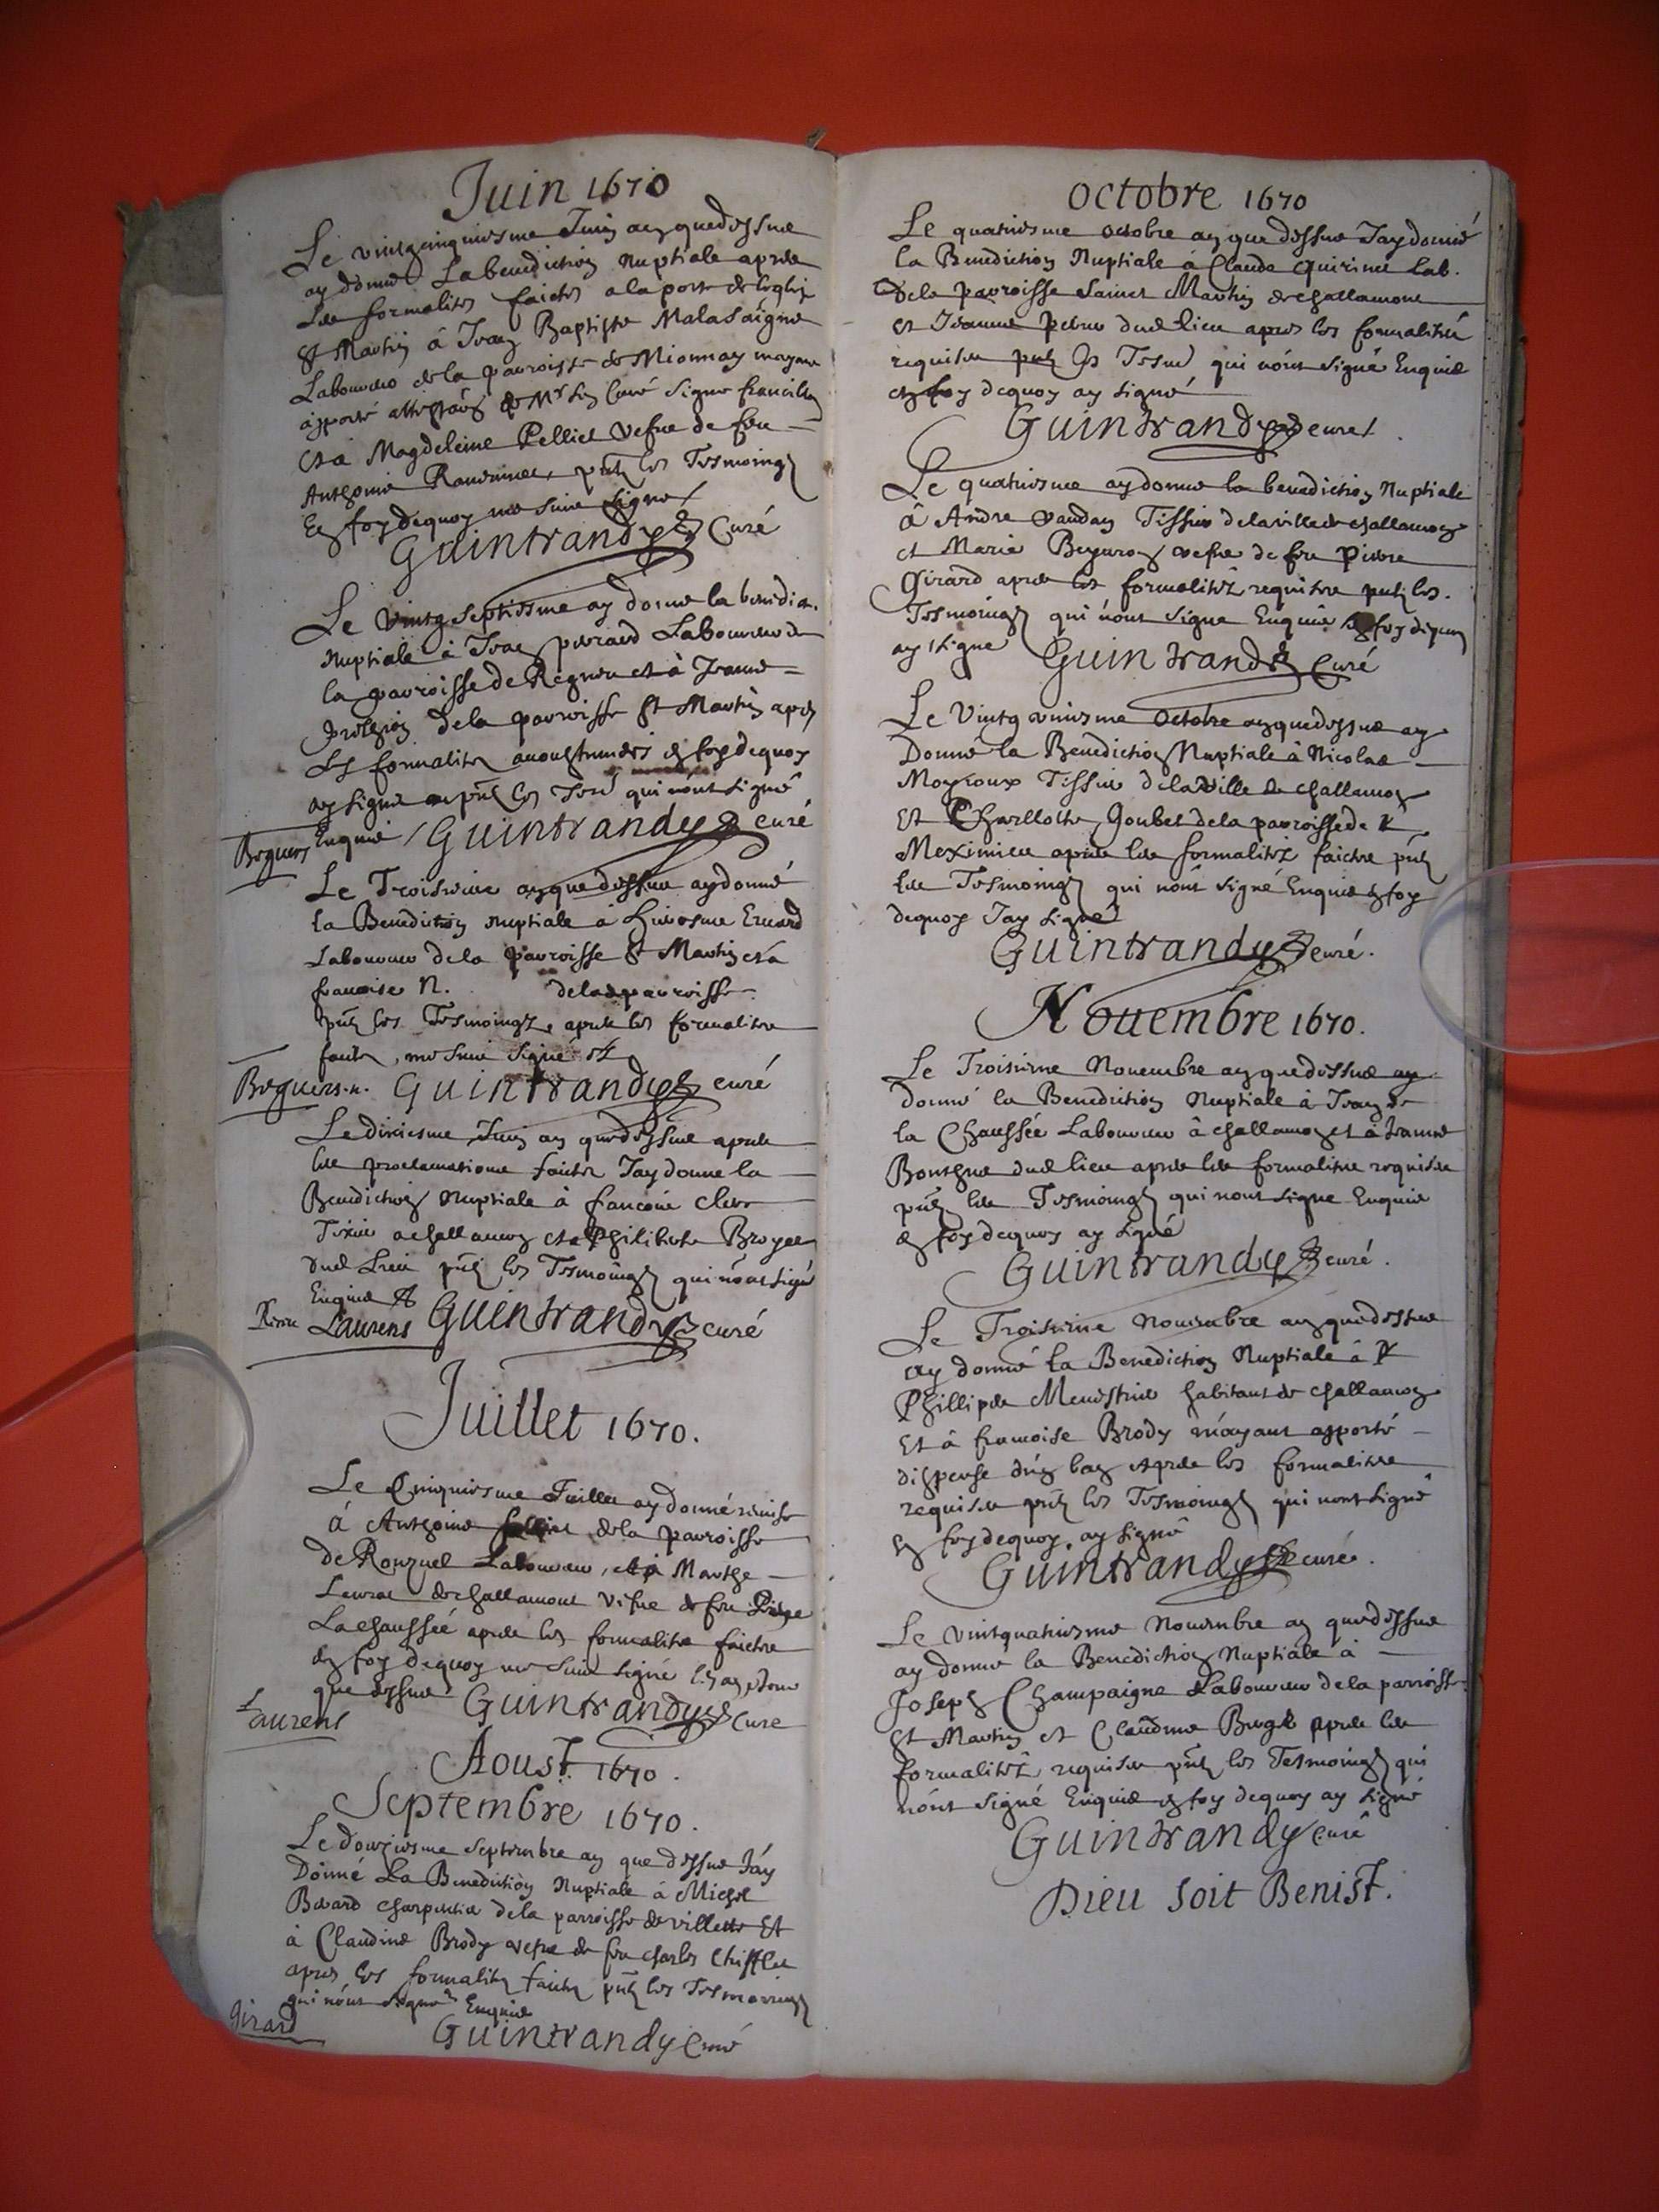 Juin 1670
Le vintcinquiesme Juin an que dessus
ay donné La benediction nuptiale apres
Les formalites faictes a la porte de leglise
St Martin à Jean Baptiste Malasaigne
Laboureur de la parroisse de Mionnay mayant
apporté attestaon de Mr Son Curé signe
et à Magdeleine Pelliet vefve de feu
Anthoine pñt les Tesmoings
En foy dequoy me suis signe
Guintrandy Curé
Le vintg septiesme ay donné la benedion.
Nuptiale à Jean Laboureur de
la parroisse de et à Jeanne
de la parroisse St Martin apres
Les formalites en foy dequoy
ay signé pñt les Tesm qui n'ont signé
Enquis Guintrandy curé
Le Troisiesme an que dessus ay donné
la Benediction nuptiale à Hierosme
Laboureur de la parroisse St Martin et à
francoise N. de la parroisse
pñt les Tesmoingz, apres les formalites
faictes, me suis signé
Guintrandy curé
Le dixiesme Juin an que dessus apres
les proclamations faictes Jay donné la
Benediction Nuptiale à francois Clerc
Tixier a challamon et a Philiberte
dud Lieu pñt les Tesmoings qui n'ont signé
Enquis
Laurens Guintrandy curé
Juillet 1670.
Le Cinquiesme Juillet ay donné remise
à Anthoine de la parroisse
de Laboureur, et à Marthe
de challamont vefve de feu
Lachaussée apres les formalites faictes
en foy dequoy me suis signé les an
que dessus Guintrandy Cure
Laurens
Aoust 1670.
Septembre 1670.
Le douziesme Septembre an que dessus Jay
Donné La Benediction Nuptiale à Michel
charpentier de la parroisse de villette Et
à Claudine Brody vefve de feu charles Chifflet
apres les formalites faictes pñt les Tesmoings
qui n'ont signe Enquis
Girard Guintrandy Curé
octobre 1670
Le quatriesme octobre an que dessus Jay donné
la Benediction Nuptiale à Claude Quirin Lab.
de la parroisse Sainct Martin de challamont
et Jeanne dud lieu apres les formalités
requises pñt les Tesm qui n'ont signé Enquis
en foy dequoy ay signé
Guintrandy cure
Le quatriesme ay donné la benediction Nuptiale
à Andre vaudan Tissier de la ville de challamon
et Marie vefve de feu Pierre
Girard apres les formalitéz requises pñt les
Tesmoings qui n'ont signe Enquis en foy dequoy
ay signe Guintrandy Curé
Le Vintg uniesme octobre an que dessus ay
Donné la Benediction Nuptiale à Nicolas
Moyroux Tissier de la ville de challamon
Et Charllotte Goubet de la parroisse de
Meximieu apres les formalitéz faictes pñt
les Tesmoings qui n'ont signé Enquis en foy
dequoy Jay signé
Guintrandy curé.
Nouembre 1670.
Le Troisieme Nouembre an que dessus ay
donné la Benediction Nuptiale à Jean de
la Chaussée Laboureur à challamon et à Jeanne
dud lieu apres les formalites requises
pñt les Tesmoings qui n'ont signe Enquis
en foy dequoy ay signé
Guintrandy curé.
Le Troisieme nouembre an que dessus
ay donné la Benediction Nuptiale à
Phillipes Menestrier habitant de challamon
Et à francoise Brody m'ayant apporté
dispense d'un ban apres les formalites
requises pñt les Tesmoings qui n'ont signé
en foy dequoy ay signé
Guintrandy curé.
Le vintquatriesme Nouembre an que dessus
ay donné la Benediction Nuptiale à
Joseph Champaigne Laboureur de la parroisse
St Martin et Claudine apres les
formalitéz requises pñt les Tesmoings qui
n'ont signé Enquis en foy dequoy ay signé
Guintrandy Curé
Dieu soit Benist.